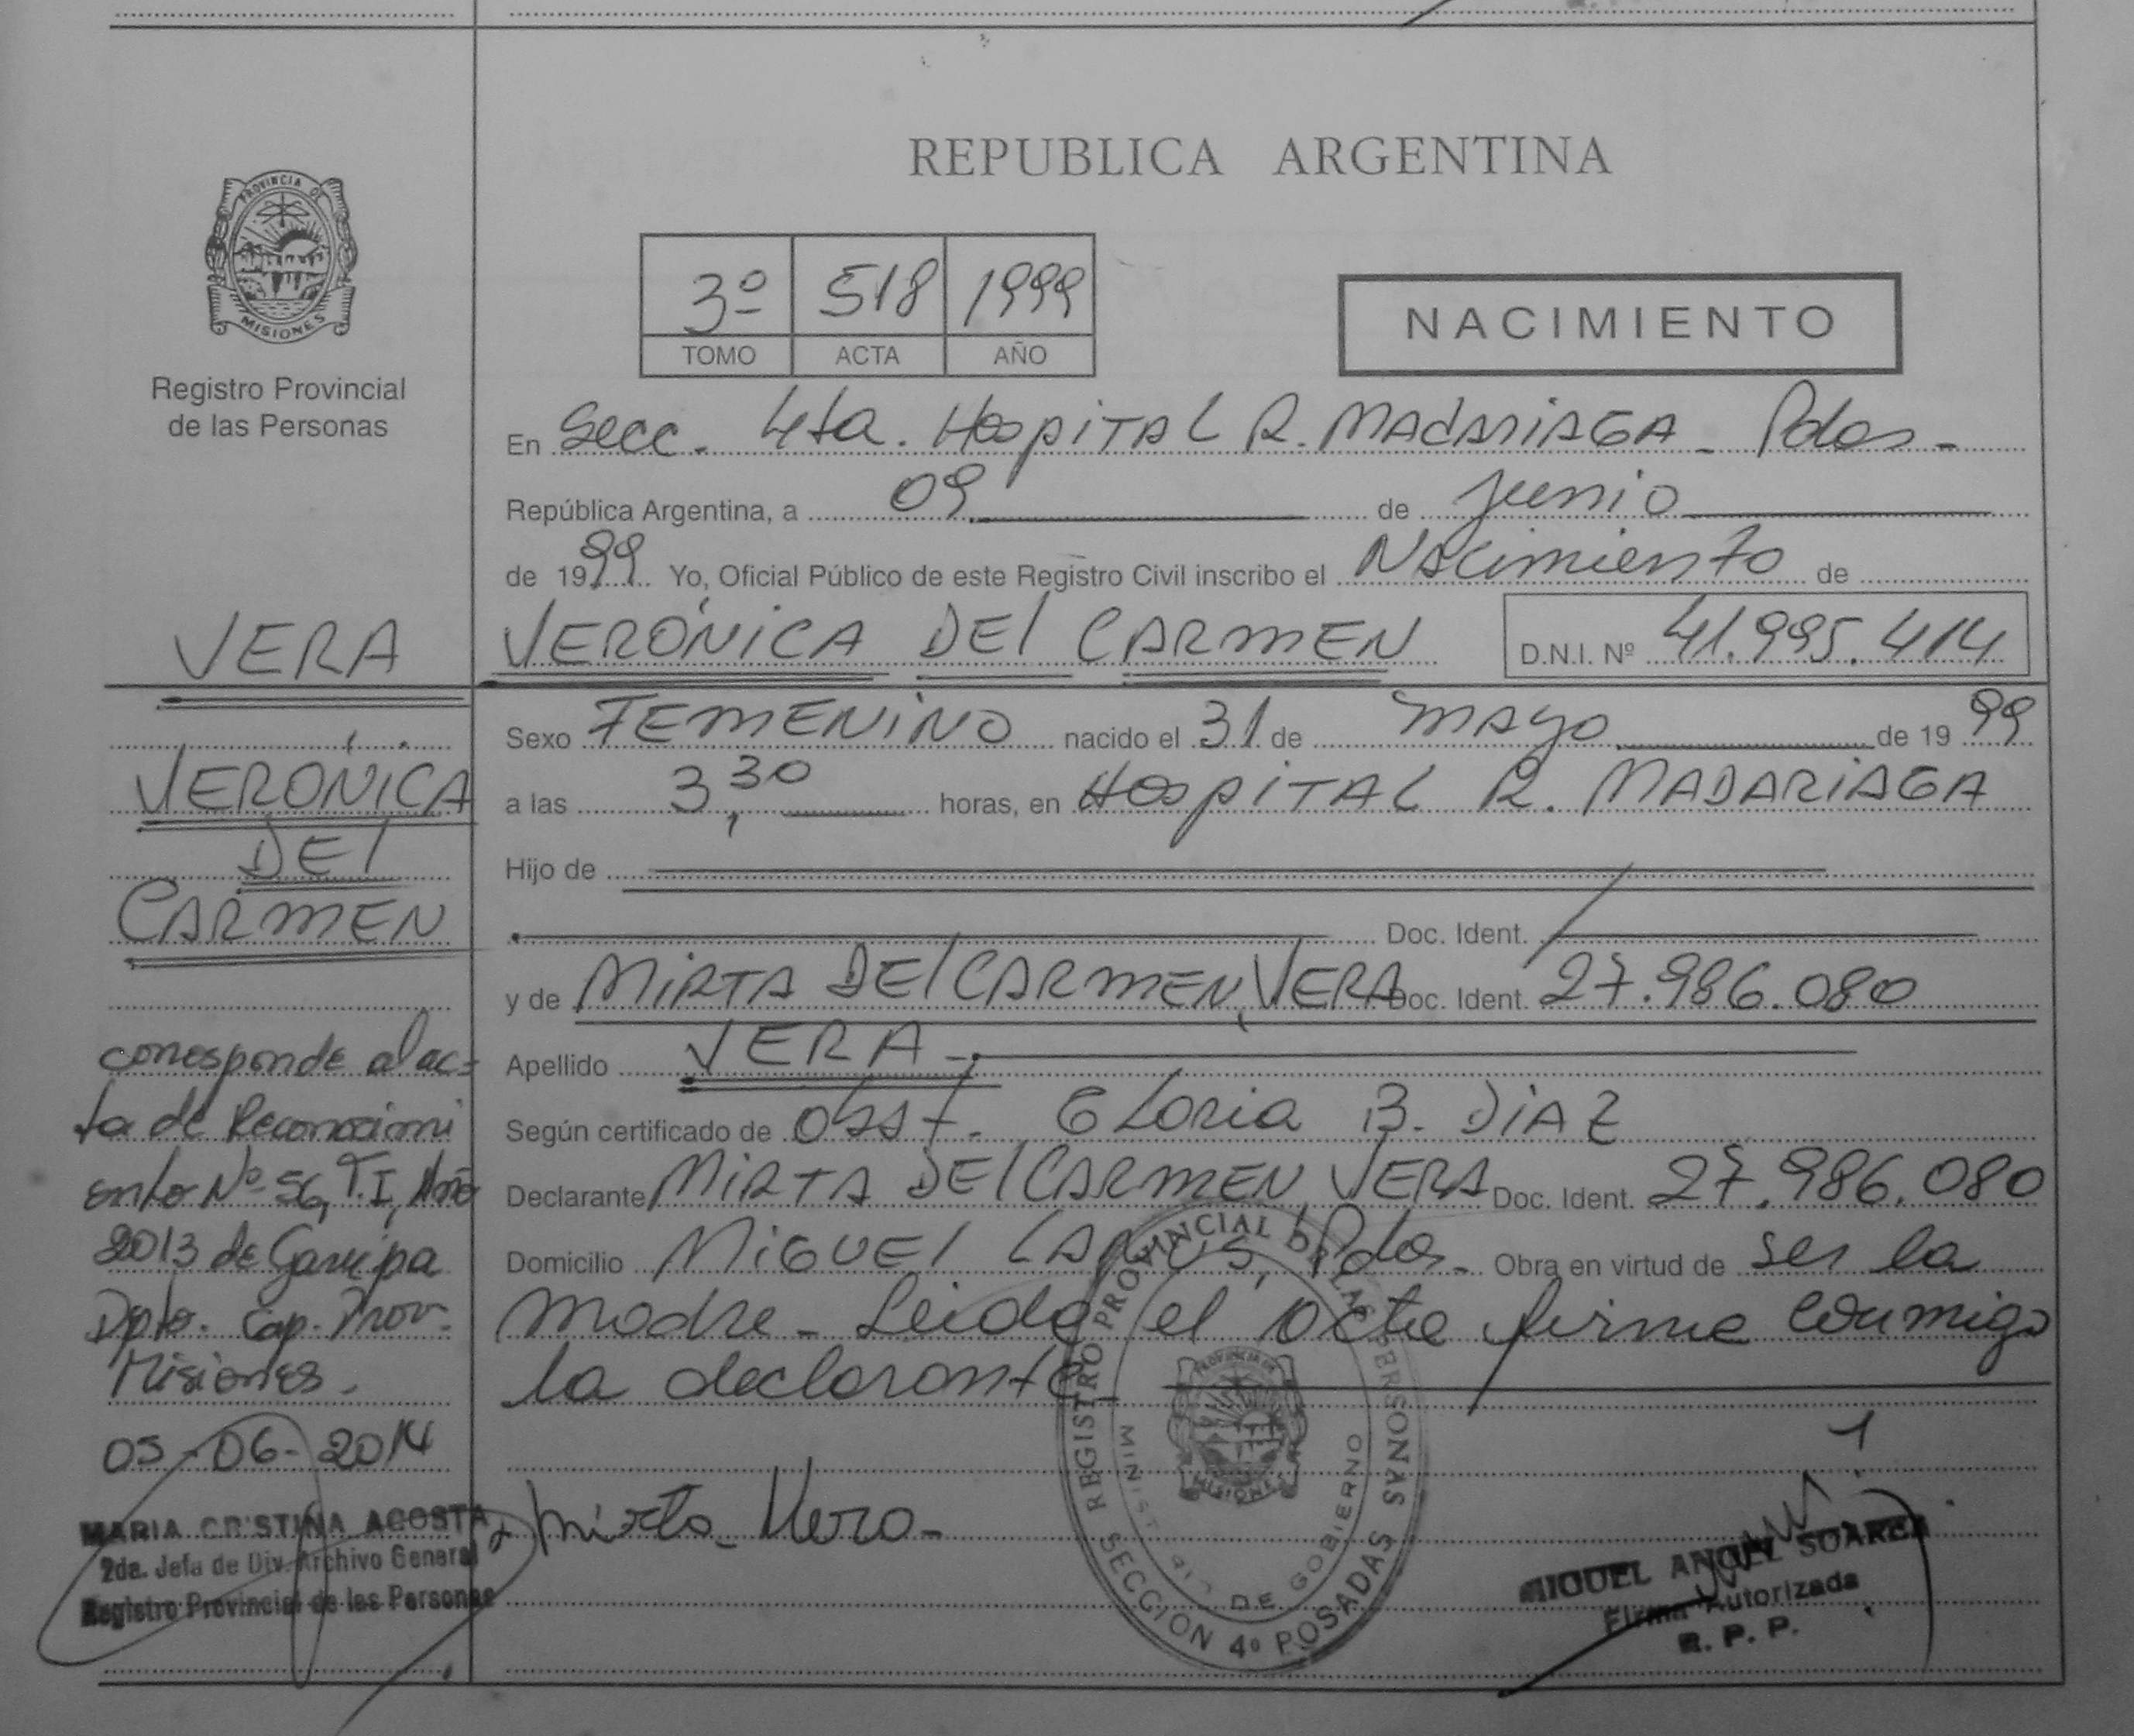 REPUBLICA ARGENTINA
PROVINCIA DE
MISIONES
Registro Provincial
de las Personas
3º 518 1999
TOMO ACTA AÑO
NACIMIENTO
En Secc. 4ta. HospiTAL R. MADARiAGA - Pdas -
República Argentina, a 09 de junio
de 1999 Yo, Oficial Público de este Registro Civil inscribo el Nacimiento de
VERÓNiCA DEl CARMEN D.N.I. Nº 41.995.414
Sexo FEMENiNO nacido el 31 de mayo de 1999
a las 3,30 horas, en HospiTAL R. MADARiAGA
Hijo de
Doc. Ident.
y de MiRTA DEl CARMEN, VERA Doc. Ident. 27.986.080
Apellido VERA -
Según certificado de Obst. Gloria B. DiAZ
Declarante MiRTA DEl CARMEN VERA Doc. Ident. 27.986.080
Domicilio MiGUEl LANUS, Pdas - Obra en virtud de ser la
madre - Leida el acta firma conmigo
la declarante
Mirta Vera -
VERA
VERÓNiCA
DEl
CARMEN
corresponde al ac-
ta de Reconocimi
ento Nº 56, T.I, Año
2013 de Garupa
Dpto. Cap. Prov.
Misiones.
05-06-2014
MARIA CRISTINA ACOSTA
2da. Jefa de Div. Archivo General
Registro Provincial de las Personas
REGISTRO PROVINCIAL DE LAS PERSONAS
SECCION 4º POSADAS
DE GOBIERNO
PROVINCIA DE
MISIONES
MIGUEL ANGEL SUAREZ
Firma Autorizada
R. P. P.